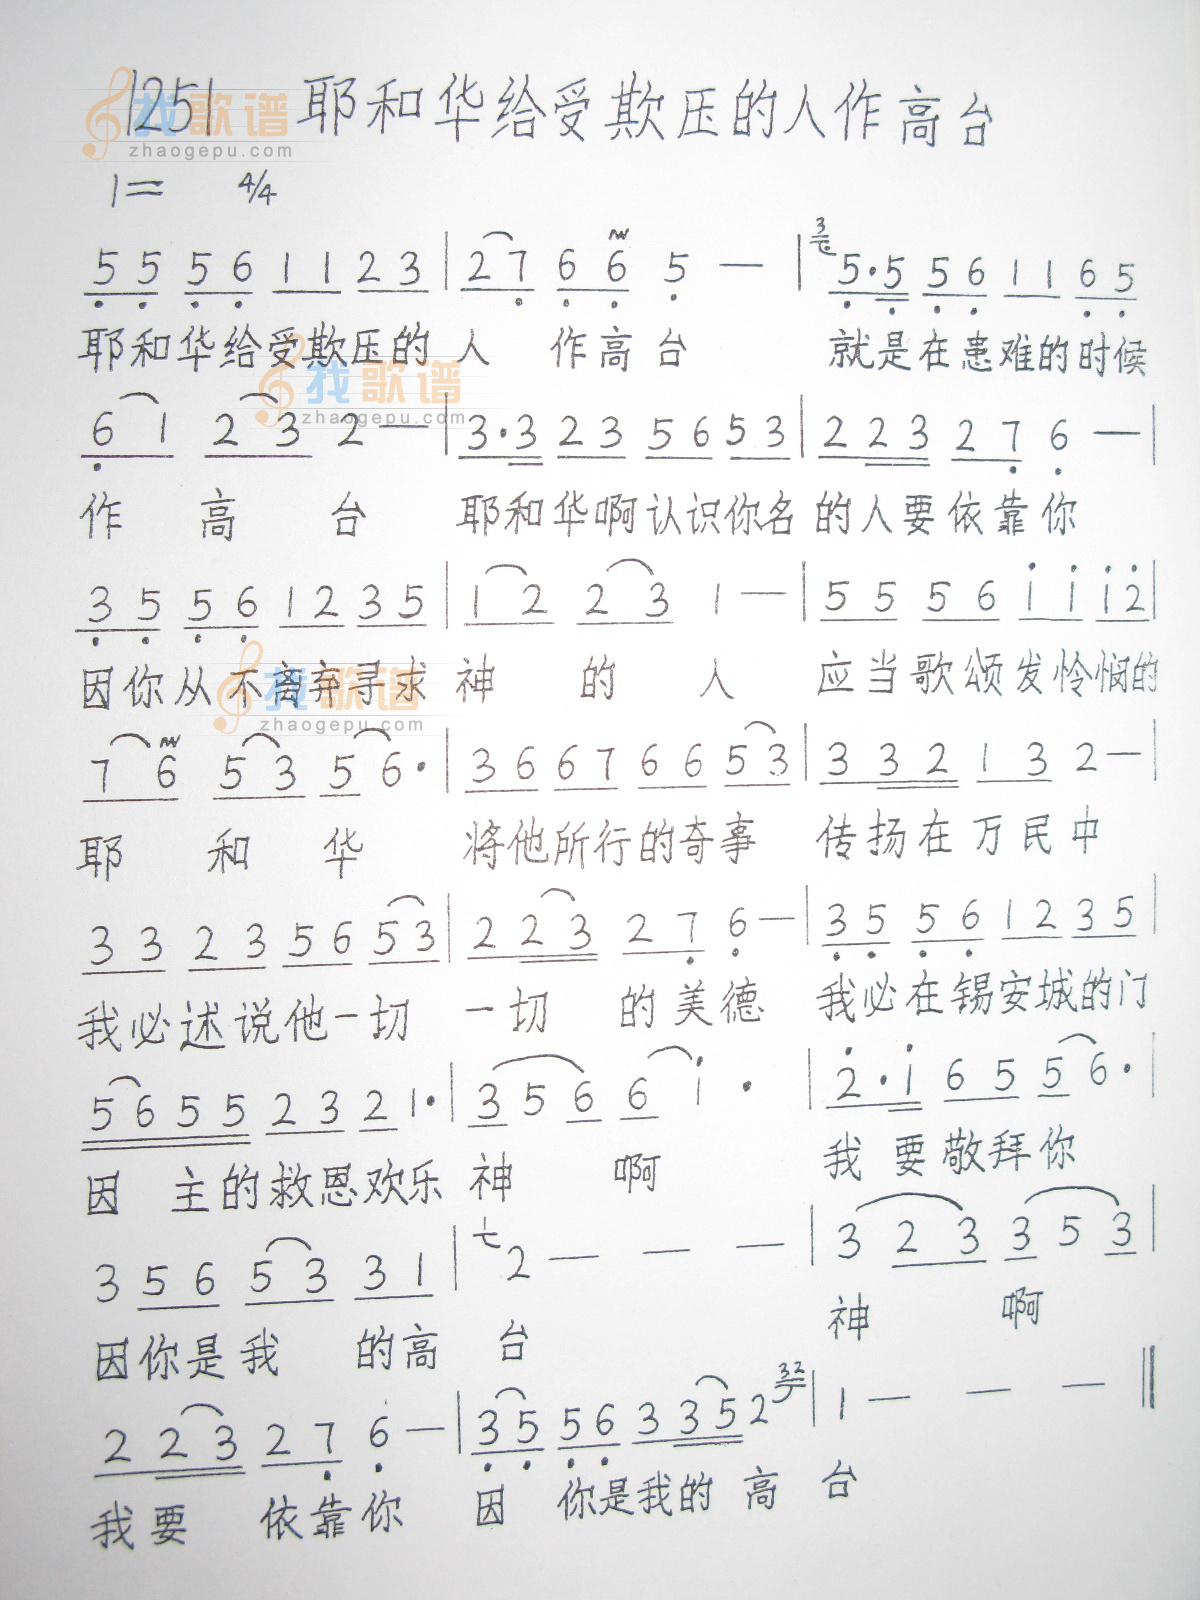 1251 耶和华给受欺压的人作高台
我歌谱
zhaogepu.com
1= 4/4
5 5 5 6 1 1 2 3 | 2 7 6 6 5 — | 3 5·5 5 6 1 1 6 5
耶和华给受欺压的 人 作高台 就是在患难的时候
我歌谱
zhaogepu.com
6 1 2 3 2 — | 3·3 2 3 5 6 5 3 | 2 2 3 2 7 6 — |
作 高 台 耶和华啊认识你名 的人要依靠你
3 5 5 6 1 2 3 5 | 1 2 2 3 1 — | 5 5 5 6 1 1 1 2 |
因你从不离弃寻求 神 的 人 应当歌颂发怜悯的
我歌谱
zhaogepu.com
7 6 5 3 5 6· | 3 6 6 7 6 6 5 3 | 3 3 2 1 3 2 — |
耶 和 华 将他所行的奇事 传扬在万民中
3 3 2 3 5 6 5 3 | 2 2 3 2 7 6 — | 3 5 5 6 1 2 3 5 |
我必述说他一切 一切 的美德 我必在锡安城的门
5 6 5 5 2 3 2 1· | 3 5 6 6 1 · | 2·1 6 5 5 6· |
因 主的救恩欢乐 神 啊 我要敬拜你
3 5 6 5 3 3 1 | 1 2 — — — | 3 2 3 3 5 3 |
因你是我 的高 台 神 啊
2 2 3 2 7 6 — | 3 5 5 6 3 3 5 2 32 | 1 — — — ‖
我要 依靠你 因 你是我的 高 台